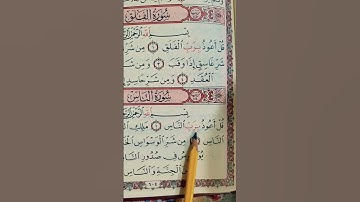 سُورَةُ الْفَلَقِ
بِسْمِ اللَّهِ الرَّحْمَٰنِ
قُلْ أَعُوذُ بِرَبِّ الْفَلَقِ ١ مِن شَرِّ
شَرِّ غَاسِقٍ إِذَا وَقَبَ ٣ وَمِن شَرِّ
الْعُقَدِ ٤ وَمِن شَرِّ حَاسِدٍ
سُورَةُ النَّاسِ
بِسْمِ اللَّهِ الرَّحْمَٰنِ
قُلْ أَعُوذُ بِرَبِّ النَّاسِ ١ مَلِكِ
النَّاسِ ٣ مِن شَرِّ الْوَسْوَاسِ
فِي صُدُورِ
الْجِنَّةِ وَالنَّاسِ